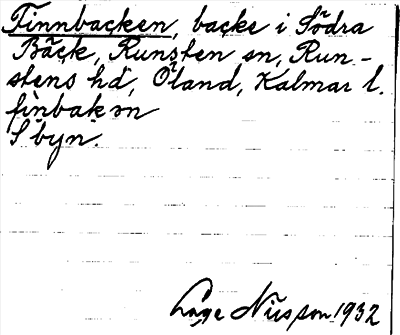 Finnbacken, backe i Södra
Bäck, Runsten sn, Run-
stens hd, Öland, Kalmar l.
finbakən
S byn.
Lage Nilsson 1932